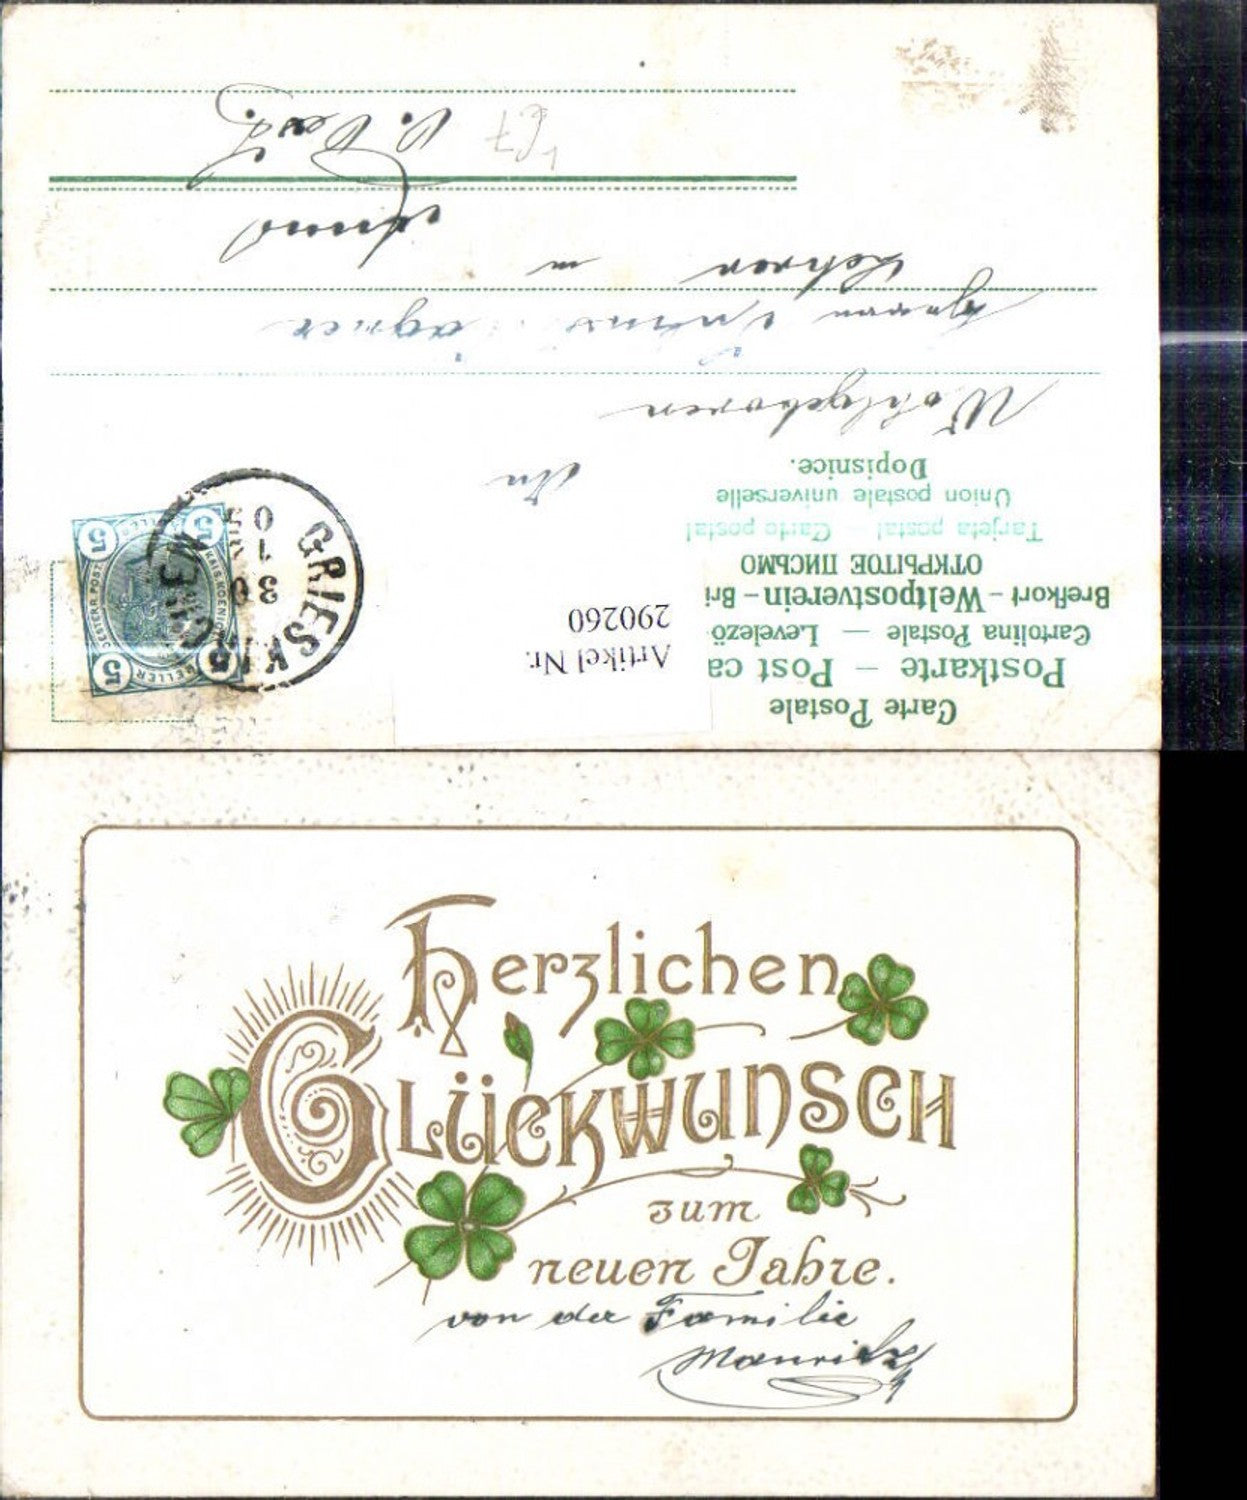 Carte Postale
Postkarte — Post ca
Cartolina Postale — Levelező-
Brefkort – Weltpostverein – Bri
ОТКРЫТОЕ ПИСЬМО
Tarjeta postal Carto postal
Union postale universelle
Dopisnice.
Artikel Nr.
290260
GRIESKIRCHEN
30
1
05
5 5
5 5
An
Wohlgeboren
Herrn
Lehrer in
Herzlichen
Glückwunsch
zum
neuen Jahre.
von der Familie